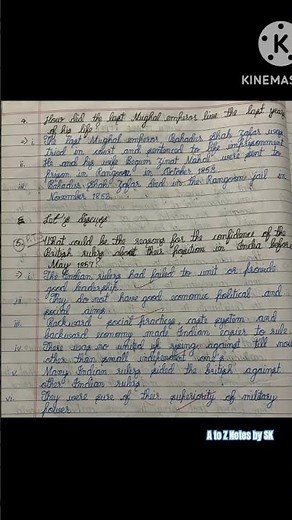 KINEMAS
Q. How did the last Mughal emperor live the last years
of his life
⇒) i. The last Mughal emperor Bahadur Shah Zafar was
tried in court and sentenced to life imprisonment
ii. He and his wife Begum Zinat Mahal were sent to
prison in Rangoon in October 1858
iii. Bahadur Shah Zafar died in the Rangoon jail in
November 1862.
Let's discuss
5. What could be the reasons for the confidence of the
British rulers about their position in India before
May 1857?
⇒) i. The Indian rulers had failed to unit or provide
good leadership.
ii. They do not have good economic political and
social aims
iii. Backward social practices caste system and
backward economy made Indian easier to rule
iv. There was no united up against till now
other than small independent
v. Many Indian rulers sided the british against
other Indian rulers.
vi. They were sure of their superiority of military
power.
A to Z Notes by SK